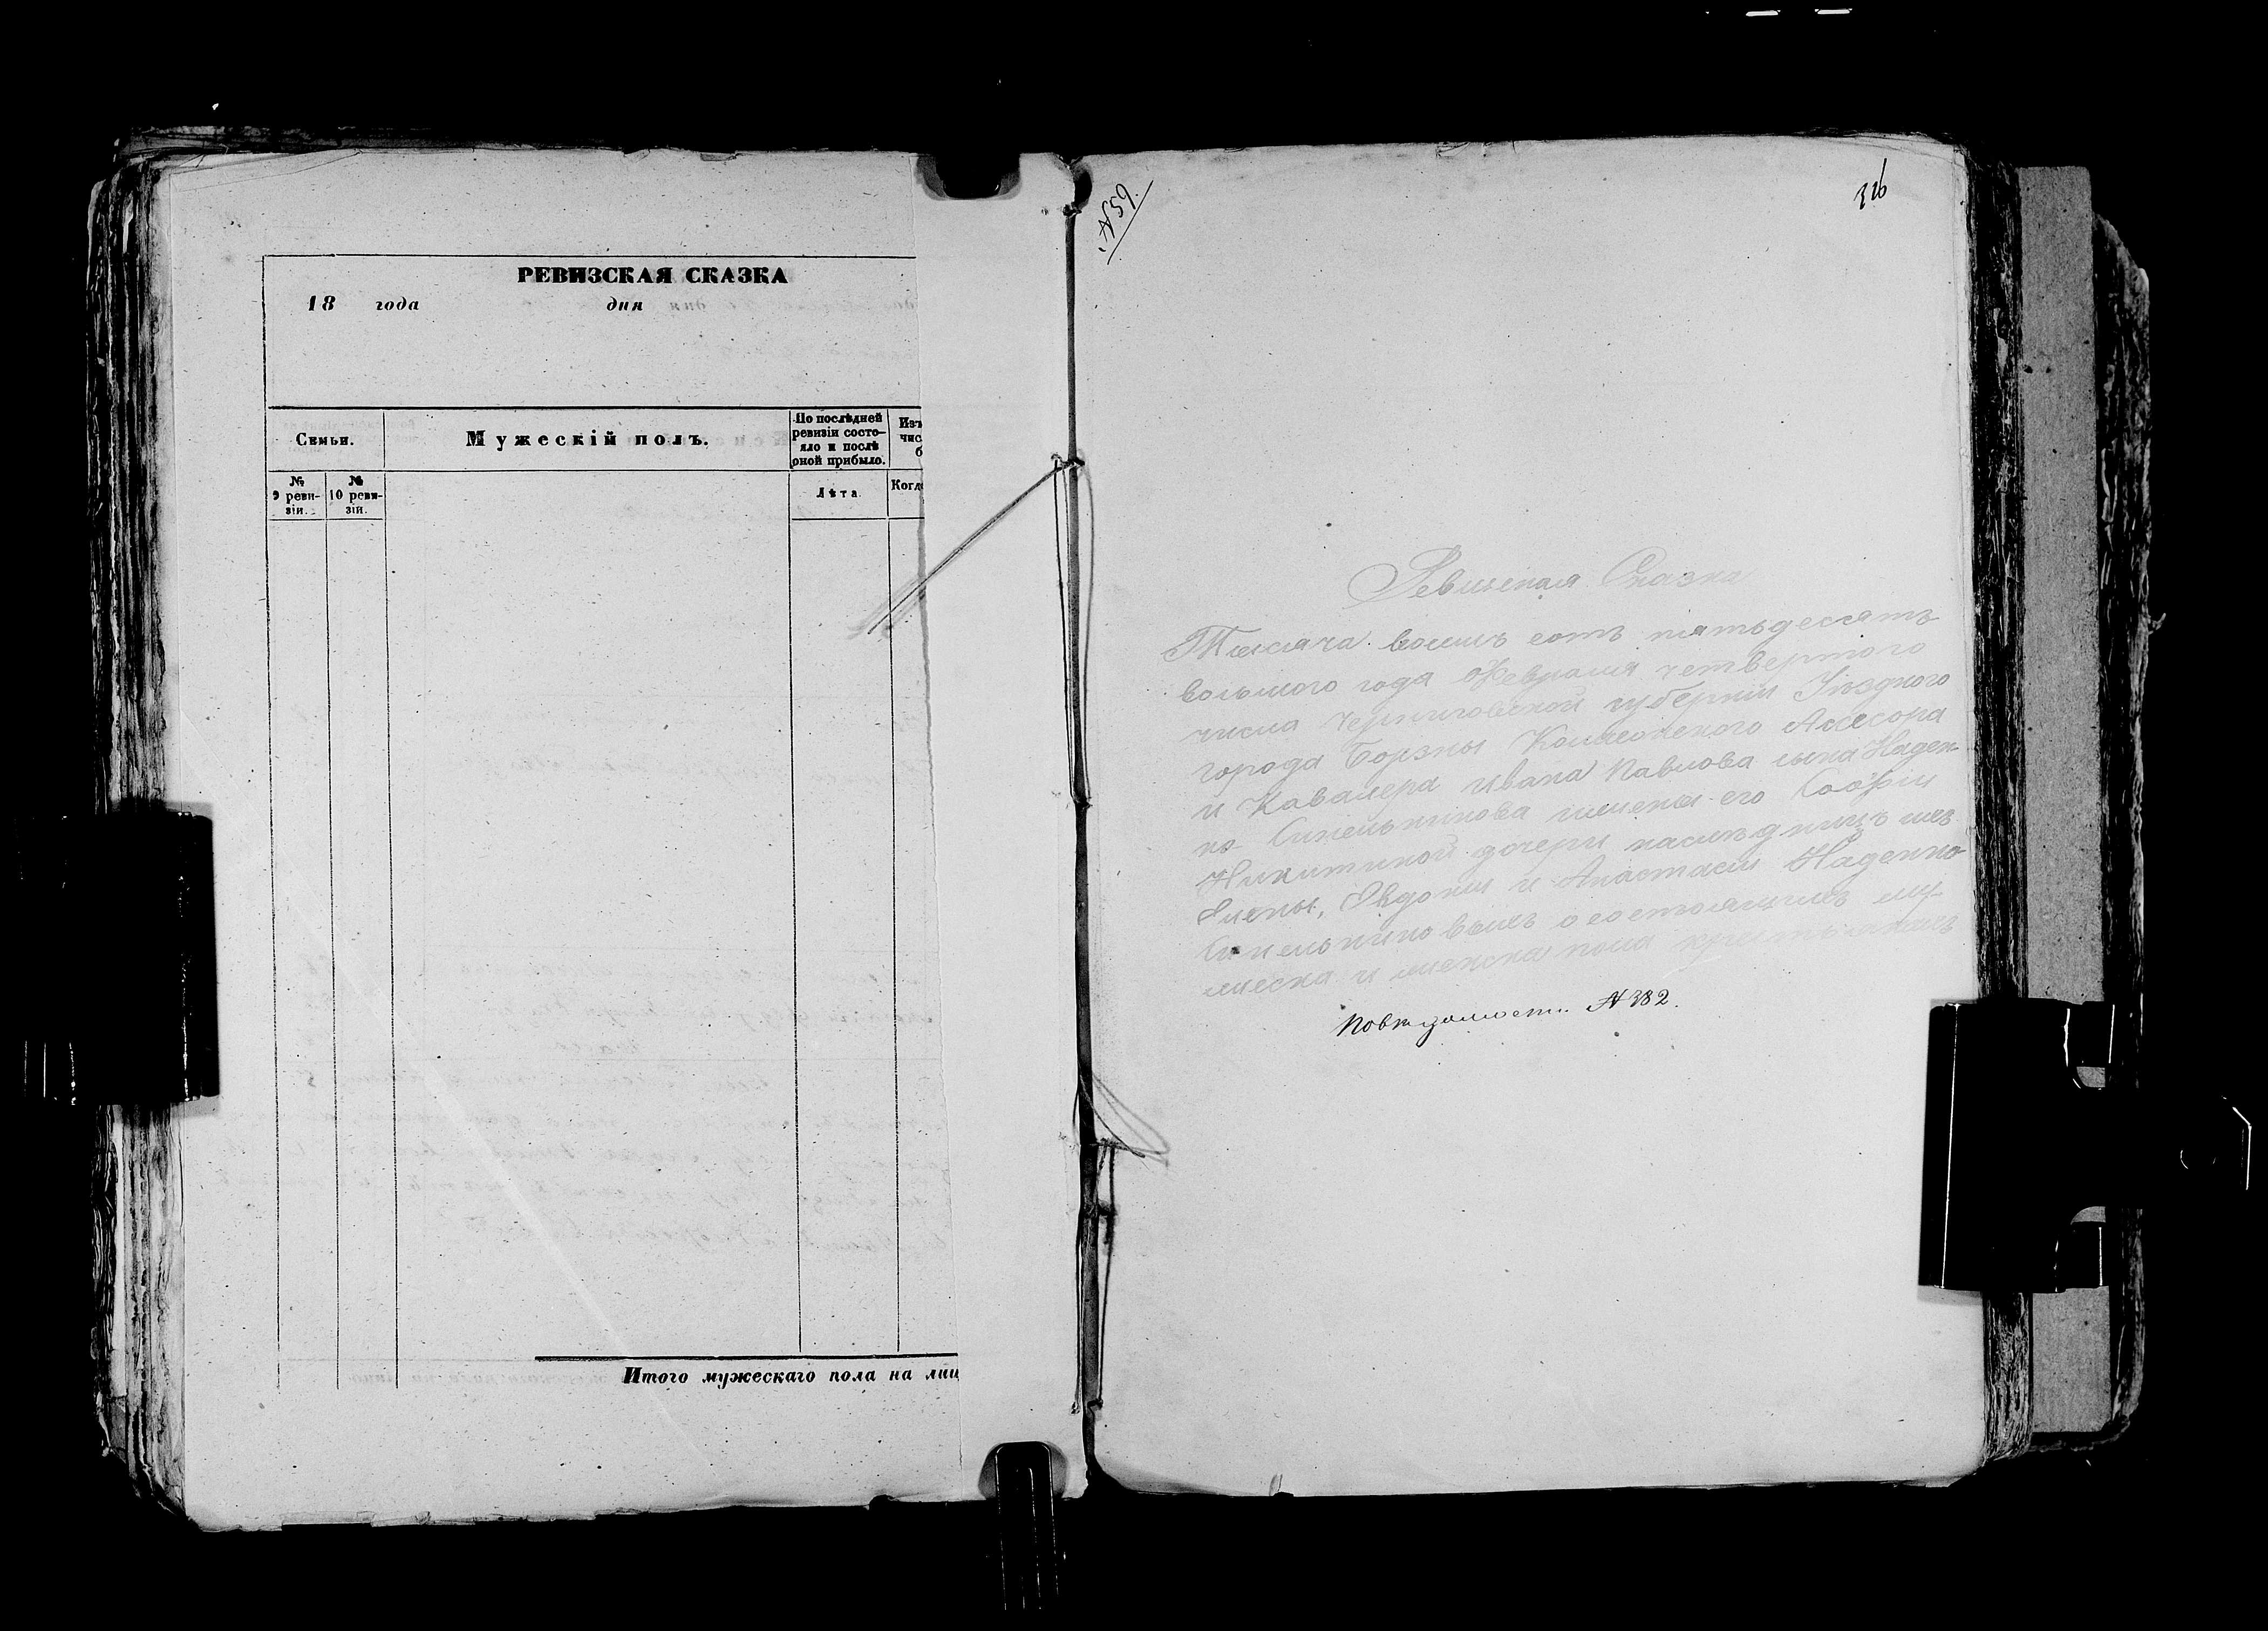 РЕВИЗСКАЯ СКАЗКА
18 года дня
Семьи.
Мужескій полъ.
По послѣдней
ревизіи состо-
яло и послѣ
оной прибыло.
Изъ
чис
б
№
9 реви-
зіи.
№
10 реви-
зій.
Лѣта
Когд
Итого мужескаго пола на лиц
№ 59.
326
Ревизская Сказка
Тысяча восимъ сотъ пятьдесятъ
восьмого года Февраля четвертого
числа Черниговской губерніи Уѣздного
города Борзны Колежского Асесора
и Кавалера Ивана Павлова сына Наден-
ко Синельникова жены его Софіи
Никитиной дочери наслѣдницъ ихъ
Елены, Евдокіи и Анастасіи Наденко
Синельниковыхъ о состоящихъ му-
жеска и женска пола крестьянахъ
По вѣдомости № 382.